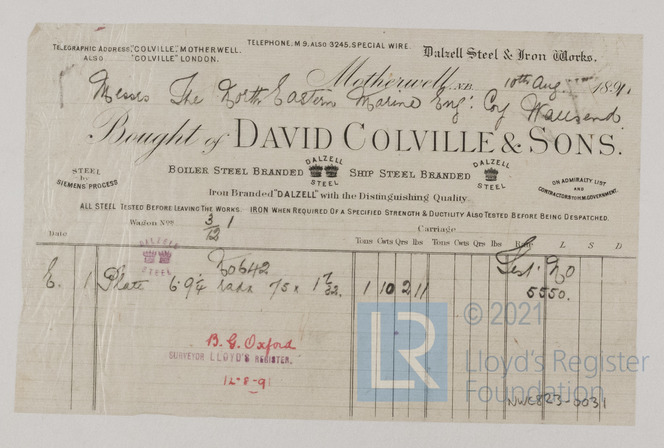 TELEPHONE: M 9. ALSO 3245. SPECIAL WIRE.
TELEGRAPHIC ADDRESS, "COLVILLE", MOTHERWELL.
ALSO "COLVILLE" LONDON.
Dalzell Steel & Iron Works.
Motherwell, N.B. 10th Aug 1891
Messrs The North Eastern Marine Engr. Coy Wallsend.
Bought of DAVID COLVILLE & SONS.
STEEL
by
SIEMENS' PROCESS
BOILER STEEL BRANDED
DALZELL
STEEL
SHIP STEEL BRANDED
DALZELL
STEEL
ON ADMIRALTY LIST
AND
CONTRACTORS FOR H.M. GOVERNMENT.
Iron Branded "DALZELL" with the Distinguishing Quality
ALL STEEL TESTED BEFORE LEAVING THE WORKS. IRON WHEN REQUIRED OF A SPECIFIED STRENGTH & DUCTILITY ALSO TESTED BEFORE BEING DESPATCHED.
Wagon Nos. 3/12 1
Carriage
Date
Tons Cwts Qrs lbs Tons Cwts Qrs lbs Rate L S D
DALZELL
STEEL
Test No
E. 1 Plate 6' 9¼ 75 x 1 7/32. 1 10 2 11 5550.
B. G. Oxford
SURVEYOR LLOYD'S REGISTER.
12-8-91
LR
© 2021
Lloyd's Register
Foundation
NWC823-0031